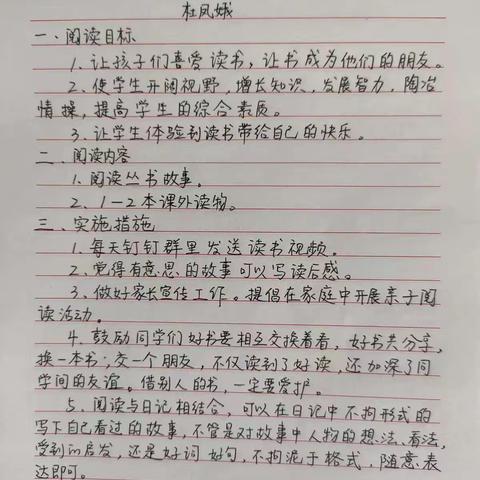 杜凤娥
一、阅读目标
1. 让孩子们喜爱读书，让书成为他们的朋友。
2、使学生开阔视野，增长知识，发展智力，陶冶
情操，提高学生的综合素质。
3. 让学生体验到读书带给自己的快乐。
二、阅读内容
1. 阅读丛书故事。
2、1-2本课外读物。
三、实施措施
1. 每天钉钉群里发送读书视频。
2. 觉得有意思的故事可以写读后感。
3. 做好家长宣传工作。提倡在家庭中开展亲子阅
读活动。
4. 鼓励同学们好书要相互交换着看，好书共分享，
换一本书；交一个朋友，不仅读到了好读，还加深了同
学间的友谊。借别人的书，一定要爱护。
5. 阅读与日记相结合，可以在日记中不拘形式的
写下自己看过的故事，不管是对故事中人物的想法、看法，
受到的启发，还是好词好句，不拘泥于格式，随意表
达即可。